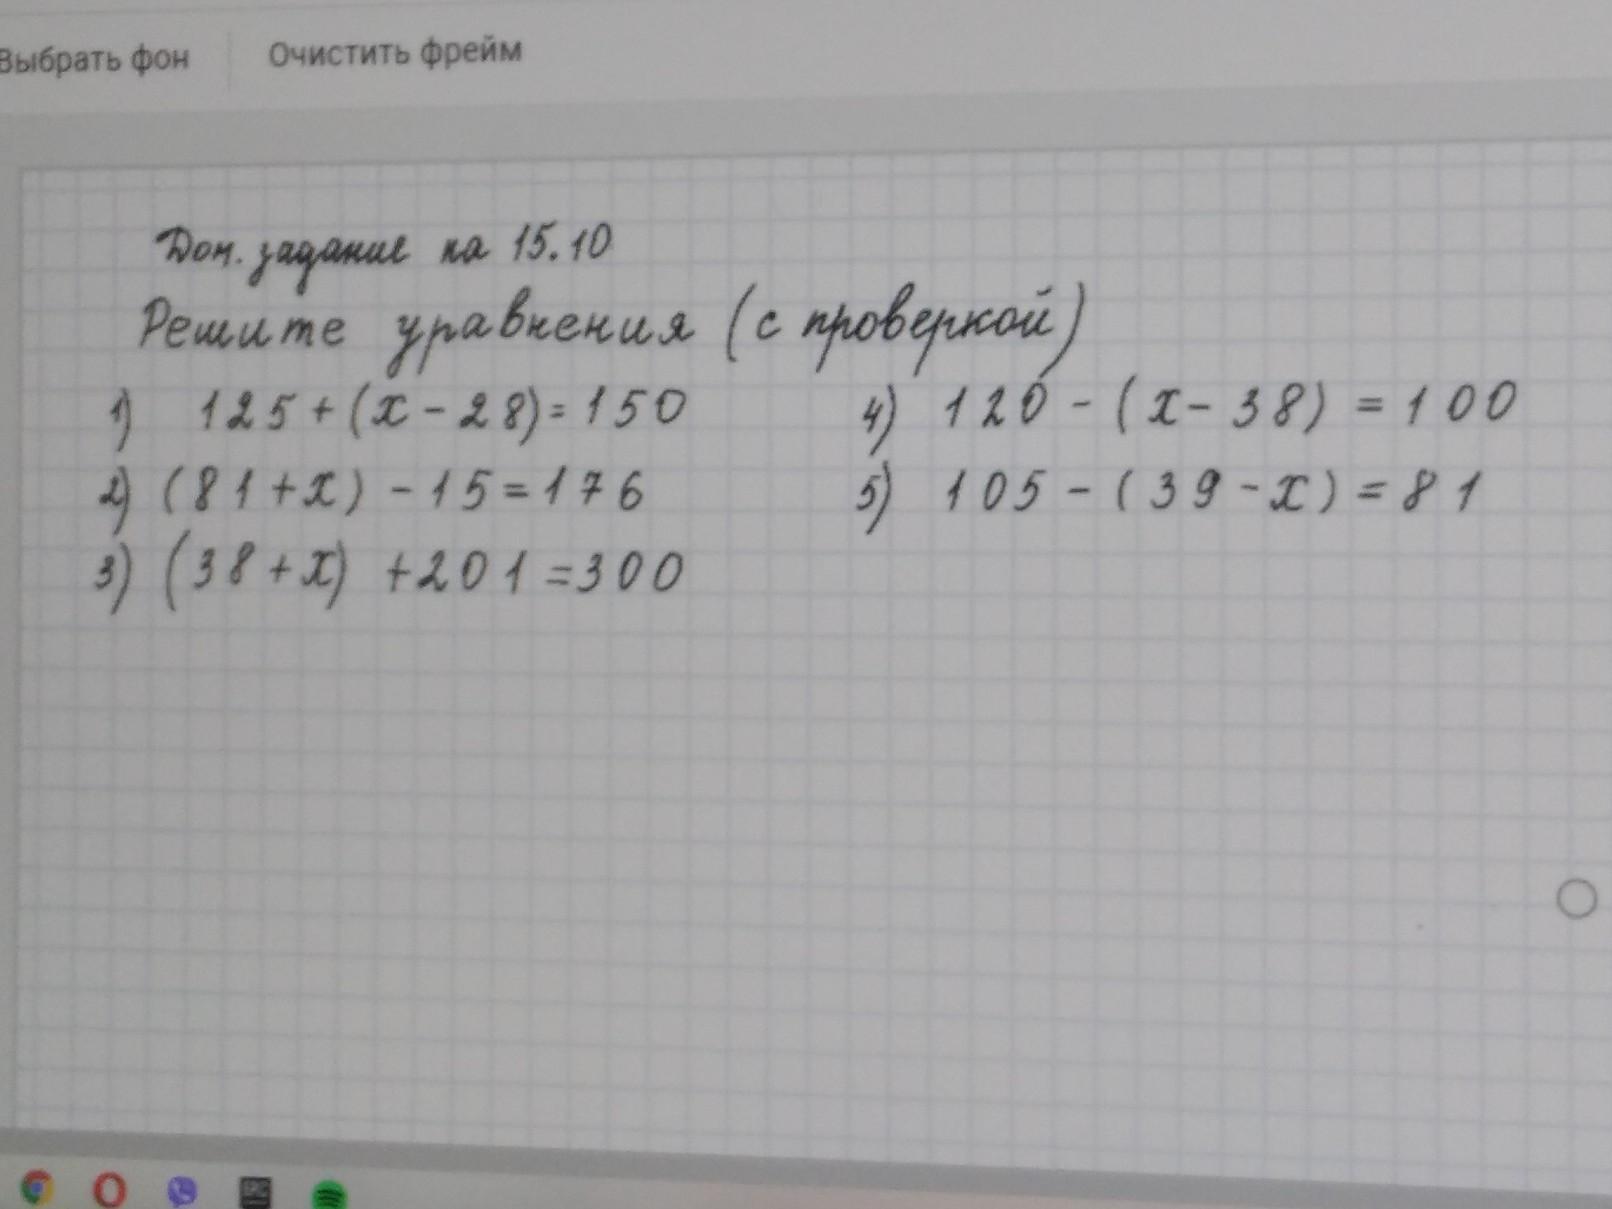 Выбрать фон
Очистить фрейм
Дом. задание на 15.10
Решите уравнения (с проверкой)
1) 125+(x-28)=150
2) (81+x)-15=176
3) (38+x)+201=300
4) 120-(x-38)=100
5) 105-(39-x)=81